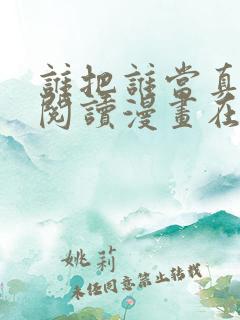 誰把誰當真
閱讀漫畫在
姚莉
未經同意禁止轉載